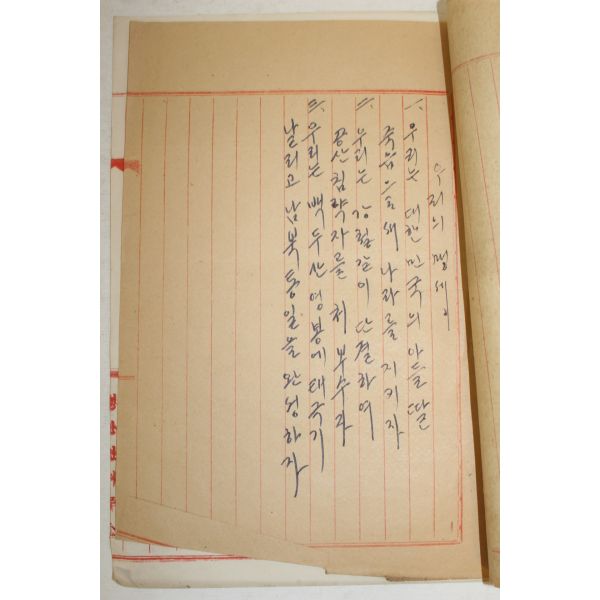 우리의 맹세
一、우리는 대한민국의 아들딸
죽음으로써 나라를 지키자
二、우리는 강철같이 단결하여
공산침략자를 처부수자
三、우리는 백두산 영봉에 태극기
날리고 남북통일을 완성하자